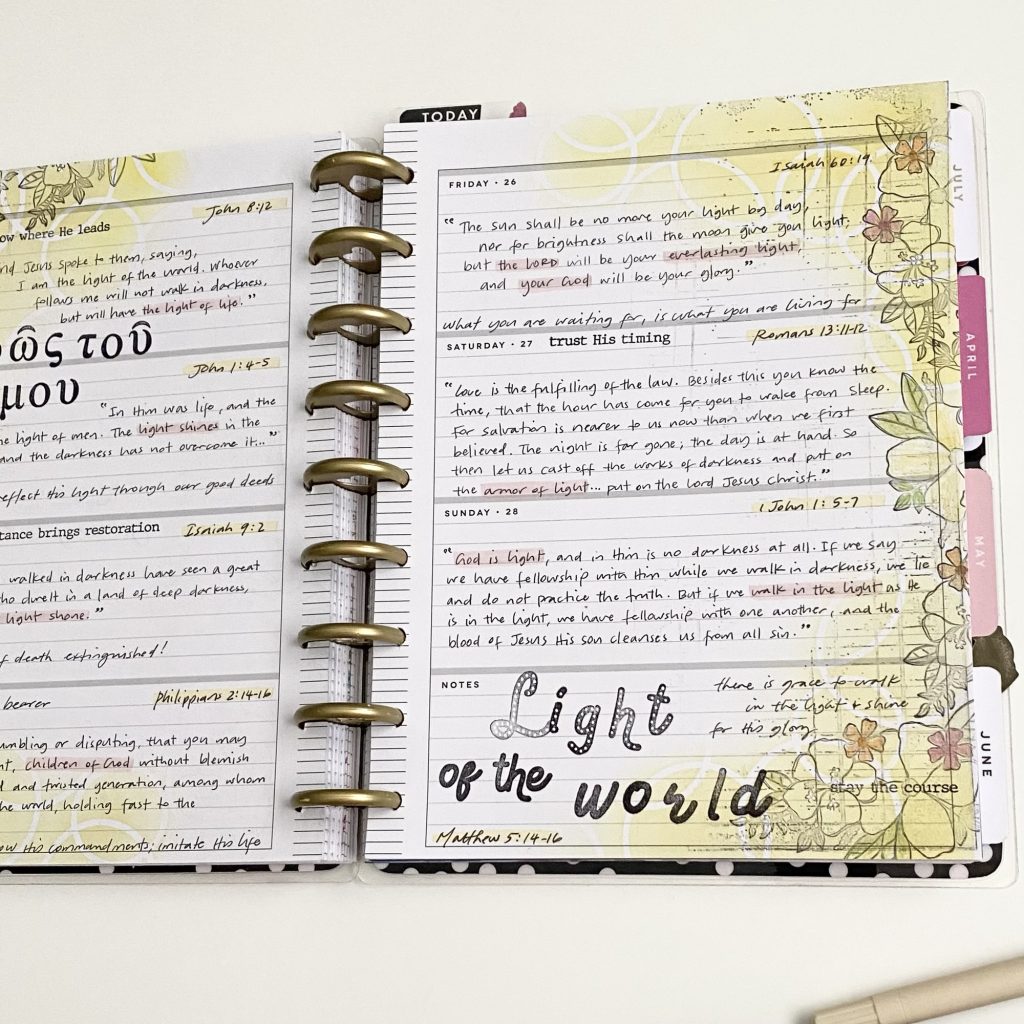 John 8:12
ow where He leads
nd Jesus spoke to them, saying,
I am the light of the world. Whoever
follows me will not walk in darkness,
but will have the light of life."
ῶς τοῦ
μου
John 1:4-5
"In Him was life, and the
he light of men. The light shines in the
and the darkness has not overcome it..."
reflect His light through our good deeds
tance brings restoration
Isaiah 9:2
walked in darkness have seen a great
ho dwelt in a land of deep darkness,
light shone."
f death extinguished!
bearer
Philippians 2:14-16
umbling or disputing, that you may
nt, children of God without blemish
d and twisted generation, among whom
he world, holding fast to the
ow His commandments; imitate His life
TODAY
FRIDAY • 26
Isaiah 60:19
"The sun shall be no more your light by day,
nor for brightness shall the moon give you light;
but the LORD will be your everlasting light,
and your God will be your glory."
what you are waiting for, is what you are living for
SATURDAY • 27
trust His timing
Romans 13:11-12
"Love is the fulfilling of the law. Besides this you know the
time, that the hour has come for you to wake from sleep.
For salvation is nearer to us now than when we first
believed. The night is far gone; the day is at hand. So
then let us cast off the works of darkness and put on
the armor of light... put on the Lord Jesus Christ."
SUNDAY • 28
1 John 1:5-7
"God is light, and in Him is no darkness at all. If we say
we have fellowship with Him while we walk in darkness, we lie
and do not practice the truth. But if we walk in the light as He
is in the light, we have fellowship with one another, and the
blood of Jesus His son cleanses us from all sin."
NOTES
Light
of the world
there is grace to walk
in the light + shine
for His glory
stay the course
Matthew 5:14-16
JULY
APRIL
MAY
JUNE